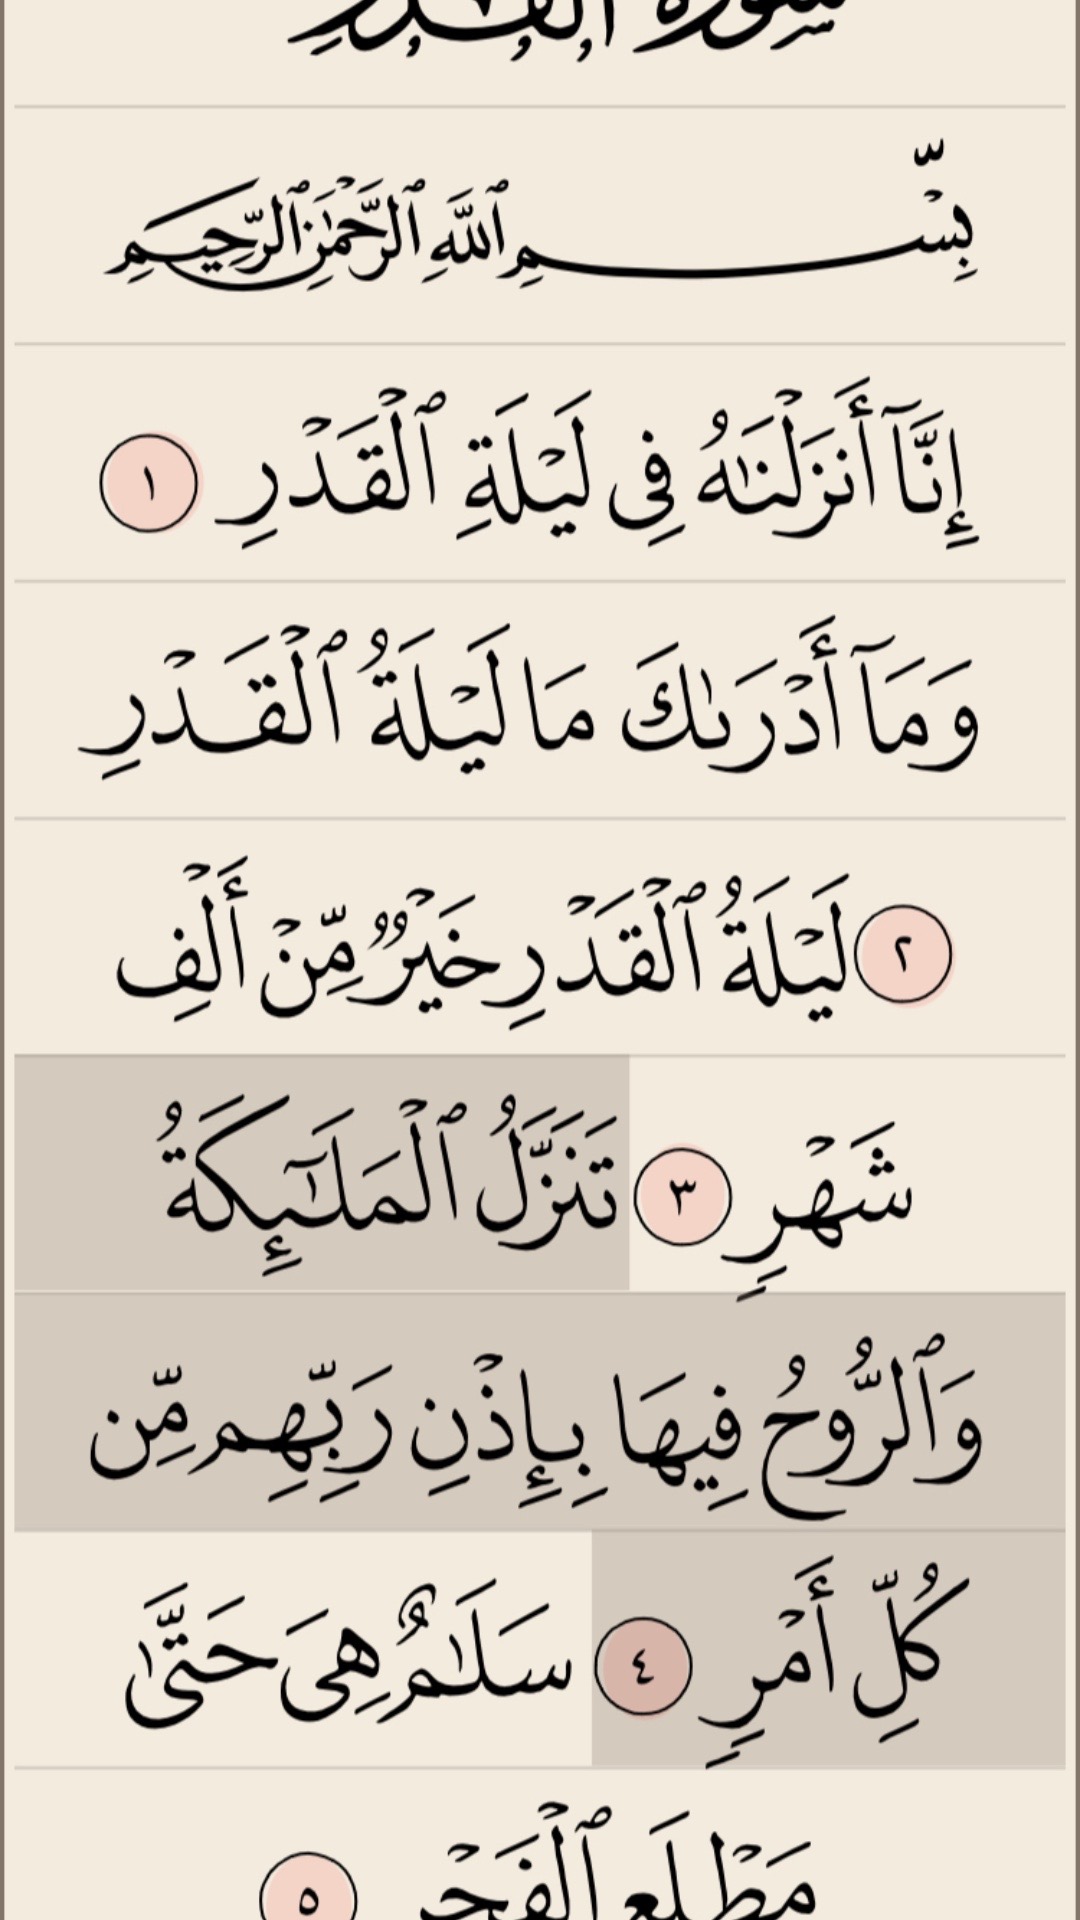 سُورَةُ ٱلۡقَدۡرِ
بِسۡمِ ٱللَّهِ ٱلرَّحۡمَٰنِ ٱلرَّحِيمِ
إِنَّآ أَنزَلۡنَٰهُ فِى لَيۡلَةِ ٱلۡقَدۡرِ ١
وَمَآ أَدۡرَىٰكَ مَا لَيۡلَةُ ٱلۡقَدۡرِ
٢ لَيۡلَةُ ٱلۡقَدۡرِ خَيۡرٌ مِّنۡ أَلۡفِ
شَهۡرٍ ٣ تَنَزَّلُ ٱلۡمَلَٰٓئِكَةُ
وَٱلرُّوحُ فِيهَا بِإِذۡنِ رَبِّهِم مِّن
كُلِّ أَمۡرٍ ٤ سَلَٰمٌ هِىَ حَتَّىٰ
مَطۡلَعِ ٱلۡفَجۡرِ ٥